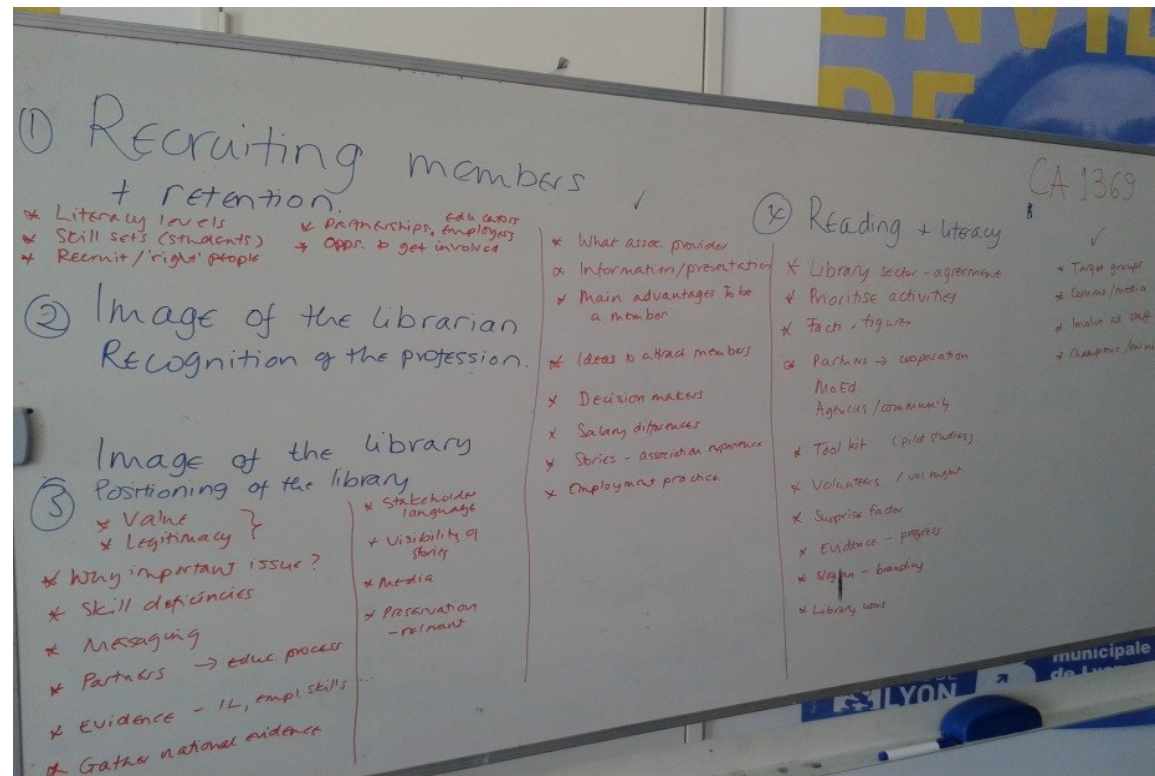 ENVIE
DE
① Recruiting members
+ retention.
* Literacy levels
* Skill sets (students)
* Recruit/'right' people
* Partnerships, educators employers
→ Opps. to get involved
② Image of the librarian
Recognition of the profession.
Image of the library
③ Positioning of the library
* Value }
* Legitimacy }
* Why important issue?
* Skill deficiencies
* Messaging
* Partners → educ process
* Evidence - IL, empl. skills ...
* Gather national evidence
* Stakeholder
language
+ Visibility of
stories
* Media
* Preservation
- relevant
✓
* What assoc provider
* Information/presentation
* Main advantages to be
a member
* Ideas to attract members
* Decision makers
* Salary differences
* Stories - association experience
* Employment practice
Reading + literacy
* Library sector - agreement
* Prioritise activities
* Facts - figures
* Partners → cooperation
MoEd
Agencies/community
* Tool kit (pilot studies)
* Volunteers / vol mgmt
* Surprise factor
* Evidence - progress
* Slogan - branding
* Library users
CA 1369
✓
* Target groups
* Comms/media
* Involve all staff
* Champions/
municipale
de Lyon
LYON